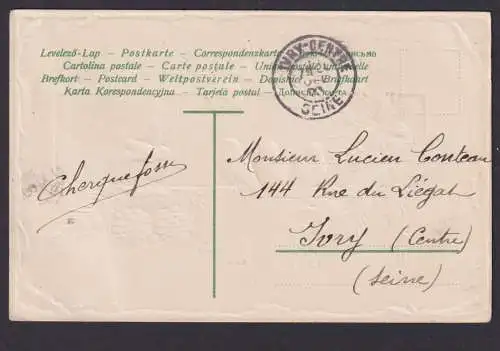 Levelező-Lap — Postkarte — Correspondenzkarte
Cartolina postale — Carte postale — Union postale universelle
Brefkort — Postcard — Weltpostverein — Dopisnice — Brevkort
Karta Korespondencyjna — Tarjeta postal — Дописна карта
IVRY-CENTRE
SEINE
Cherquefosse
Monsieur Lucien Conteau
144 Rue du Liégat
Ivry (Centre)
(Seine)